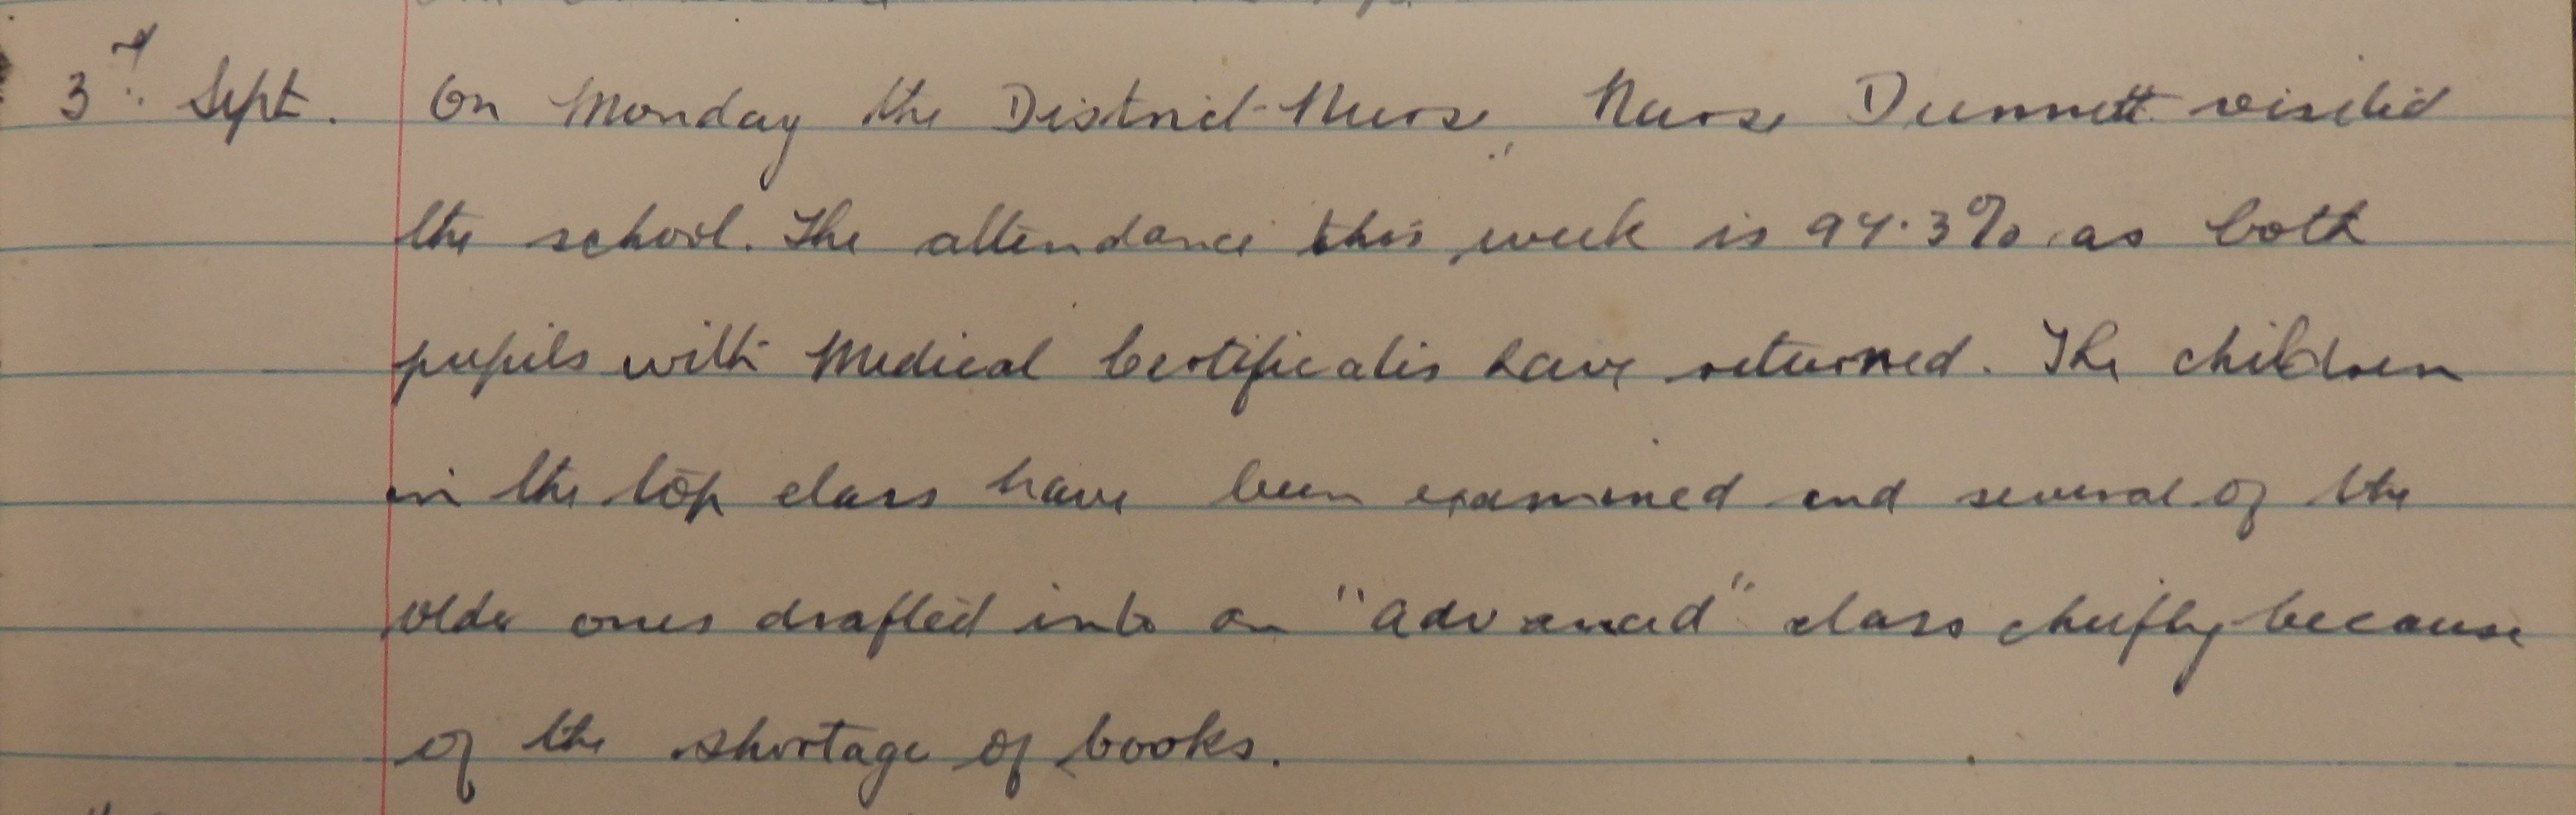 3rd Sept. On Monday the District-Nurse, Nurse Dunnett visited
the school. The attendance this week is 94.3% as both
pupils with Medical Certificates have returned. The children
in the top class have been examined and several of the
older ones drafted into an "advanced" class chiefly because
of the shortage of books.